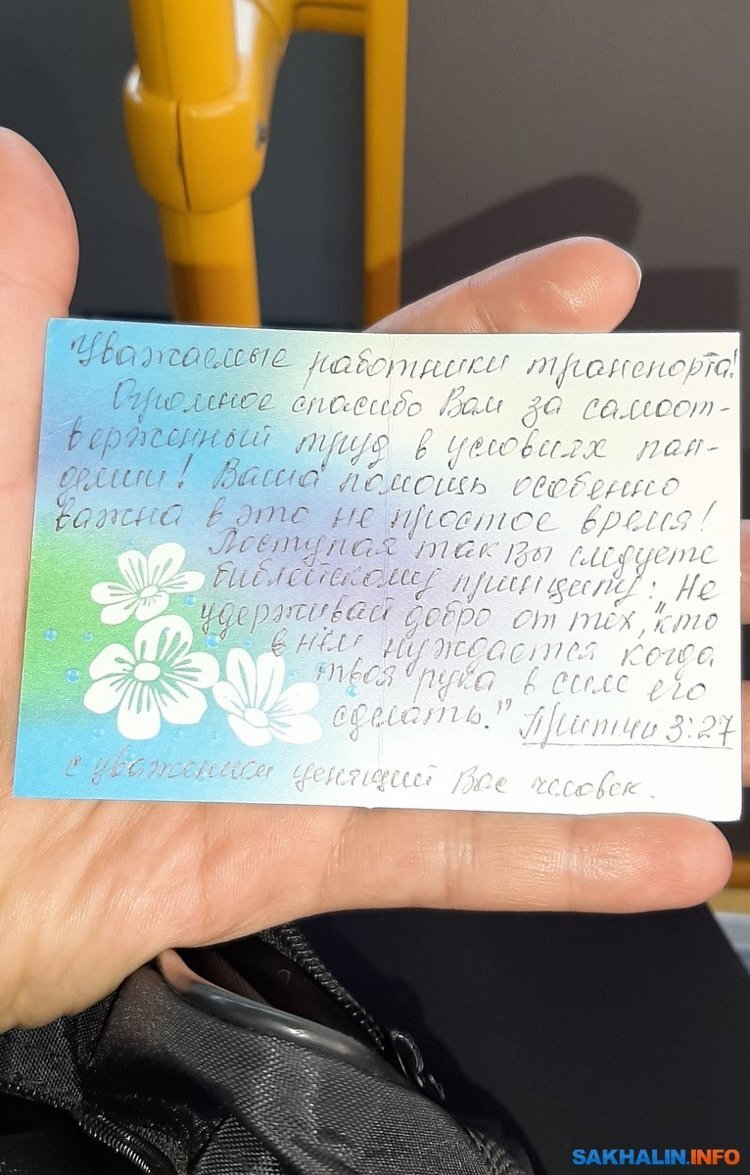 Уважаемые работники транспорта!
Огромное спасибо Вам за самоот-
верженный труд в условиях пан-
демии! Ваша помощь особенно
важна в это не простое время!
Поступая так Вы следуете
библейскому принципу: Не
удерживай добро от тех, "кто
в нём нуждается когда
твоя рука в силе его
сделать." Притчи 3:27
с уважением ценящий Вас человек.
SAKHALIN.INFO